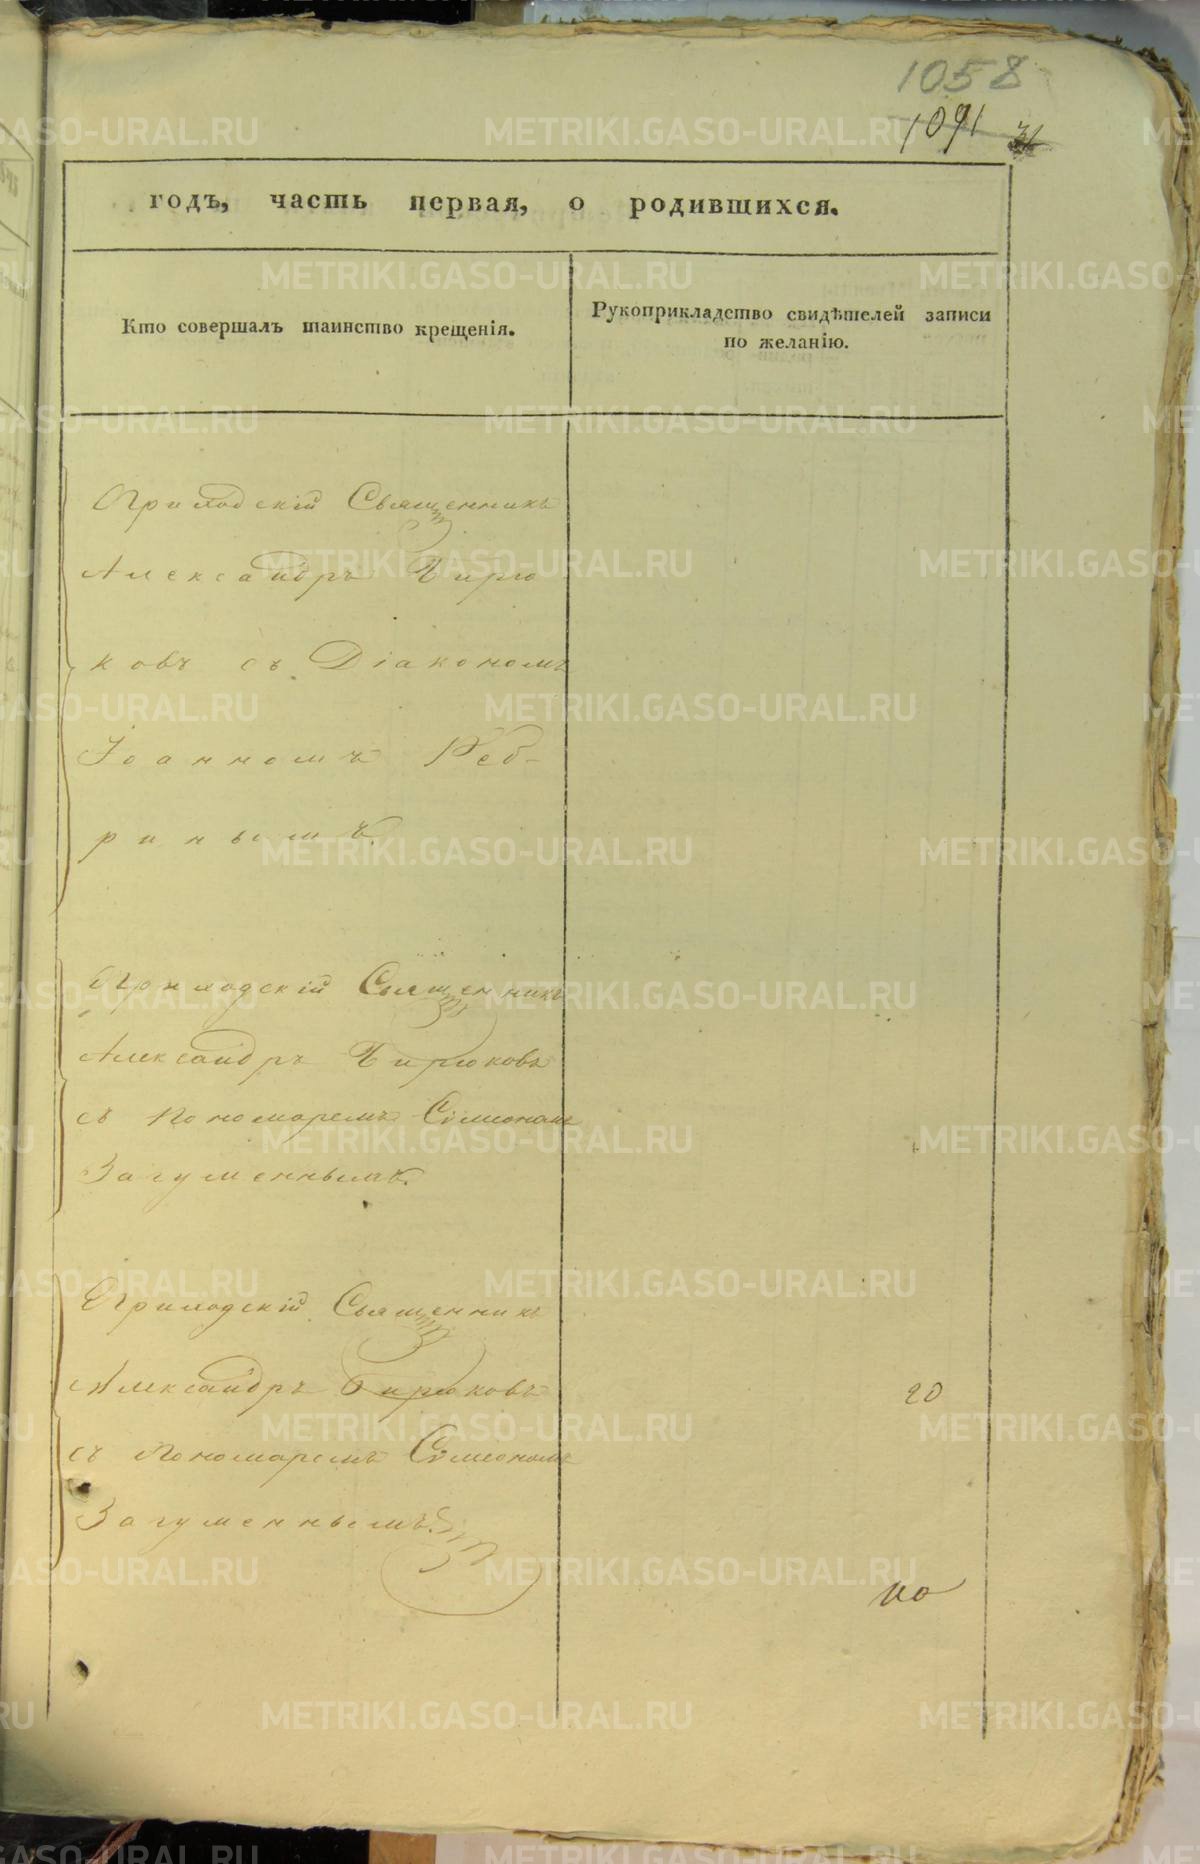 1058
1091
годъ, часть первая, о родившихся.
Кто совершалъ таинство крещенія.
Рукоприкладство свидѣтелей записи
по желанію.
Приходскій Священникъ
Александръ Бирю
ковъ съ Діакономъ
Іоанномъ Реб-
ринымъ.
Приходскій Священникъ
Александръ Бирюковъ
съ Пономаремъ Симеономъ
Загуменнымъ.
Приходскій Священникъ
Александръ Бирюковъ
съ Пономаремъ Симеономъ
Загуменнымъ.
20
по
METRIKI.GASO-URAL.RU